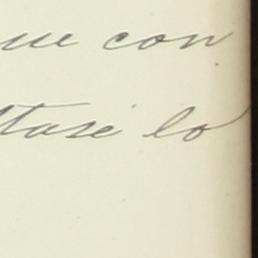 ue con
tase lo